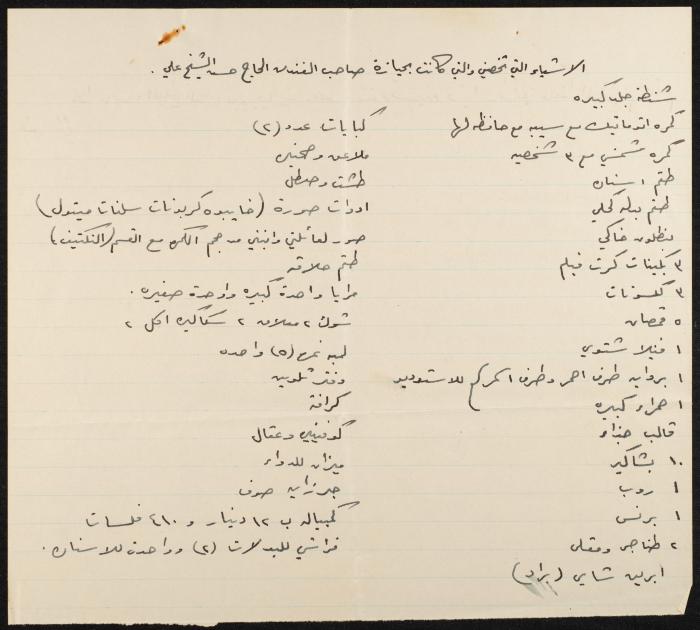 الاشياء التي تخصني والتي كانت بحيازة صاحب الفندق الحاج حسن الشيخ علي .
شنطة جلد كبيره
كمره اتوماتيك مع سيبه مع حافظه لها
كمره شمسي مع ٣ شخصيه
طقم اسنان
طقم بدله كحلي
بنطلون خاكي
٣ كرت فيلم
٣ كلسونات
٥ قمصان
١ فنيلا شتوي
١ طرف احمر وطرف للاستوديو
١ حمراء كبيره
قالب حذاء
١٠ بشاكير
١ روب
١ برنس
٢ طناجر ومقلى
ابريق شاي (براد)
كبايات عدد (٢)
ملاعق وصحنين
طشت وسطل
ادوات صورة ( كربونات ميتول)
صور لعائلتي وابنتي مع القسم
طقم حلاقه
مرايا واحدة كبيره وواحدة صغيره .
شوك ٢ معلاق ٢ سكاكين اكل ٢
لمبه نمرة (٥) واحده
دفتر تلوين
كرافة
كوفيتين وعقال
ميزان للدواء
جرزايه صوف
كمبياله ب ١٢ دينار و ٤١٠ فلسات
فراشي للبدلات (٢) وواحدة للاسنان .